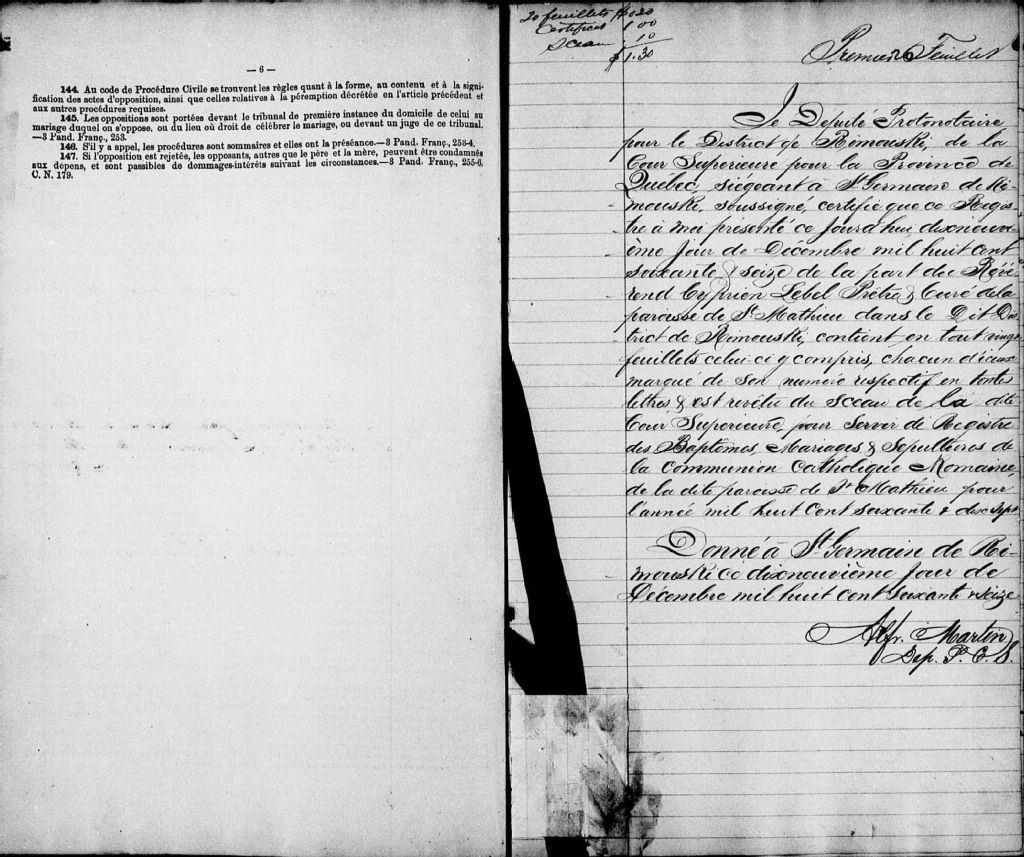 — 6 —
144. Au code de Procédure Civile se trouvent les règles quant à la forme, au contenu et à la signi-
fication des actes d'opposition, ainsi que celles relatives à la péremption décrétée en l'article précédent et
aux autres procédures requises.
145. Les oppositions sont portées devant le tribunal de première instance du domicile de celui au
mariage duquel on s'oppose, ou du lieu où droit de célébrer le mariage, ou devant un juge de ce tribunal.
—3 Pand. Franç., 253.
146. S'il y a appel, les procédures sont sommaires et elles ont la préséance.—3 Pand. Franç., 253-4.
147. Si l'opposition est rejetée, les opposants, autres que le père et la mère, peuvent être condamnés
aux dépens, et sont passibles de dommages-intérêts suivant les circonstances.—3 Pand. Franç., 255-6.
C. N. 179.
20 feuillets $0.20
Certificat 1.00
Sceau 10
$1.30
Premier Feuillet
Je Député Protonotaire
pour le District de Rimouski, de la
Cour Superieure pour la Province de
Québec, siégeant à St Germain de Ri-
mouski, soussigné, certifie que ce Regis-
tre à moi présenté ce jourd'hui dixneuvi-
ème jour de Décembre mil huit cent
soixante & seize de la part du Révé-
rend Cyprien Lebel Prêtre & Curé de la
paroisse de St Mathieu dans le Dit Dis-
trict de Rimouski, contient en tout vingt
feuillets celui-ci y compris, chacun d'iceux
marqué de son numéro respectif en toutes
lettres & est revêtu du sceau de la dite
Cour Superieure, pour servir de Registre
des Baptêmes, Mariages & Sepultures de
la communion Catholique Romaine,
de la dite paroisse de St Mathieu pour
l'année mil huit cent soixante & dix Sept
Donné à St Germain de Ri-
mouski ce dixneuvième jour de
Décembre mil huit cent soixante & seize
Alfr. Martin
Dep. P. C. S.